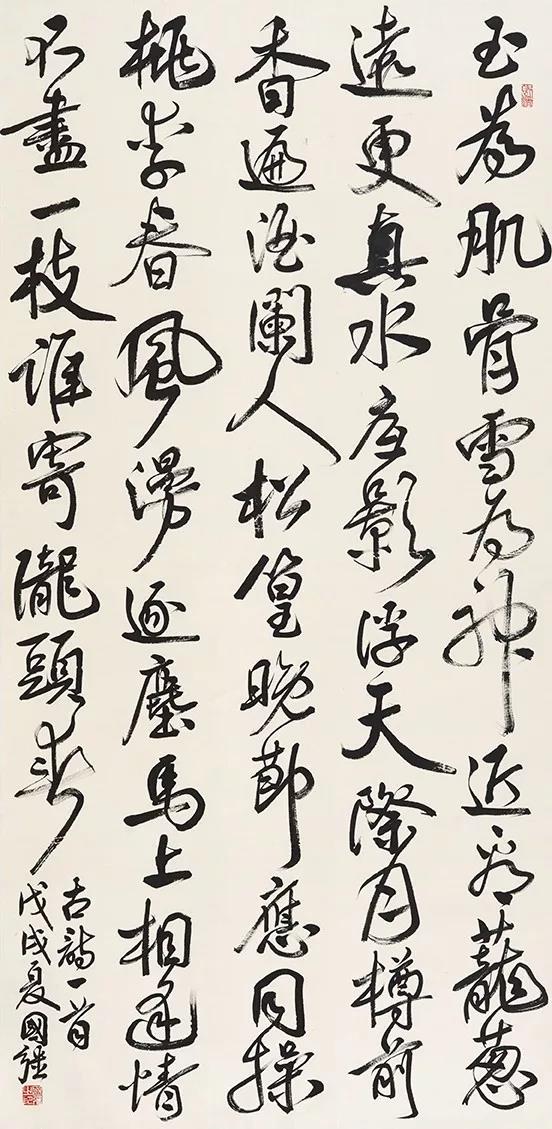 玉為肌骨雪為神近看蘢蔥
遠更真水底影浮天際月樽前
香遍酒闌人松篁晚節應同操
桃李春風漫逐塵馬上相逢情
不盡一枝誰寄隴頭春
古詩一首
戊戌夏國